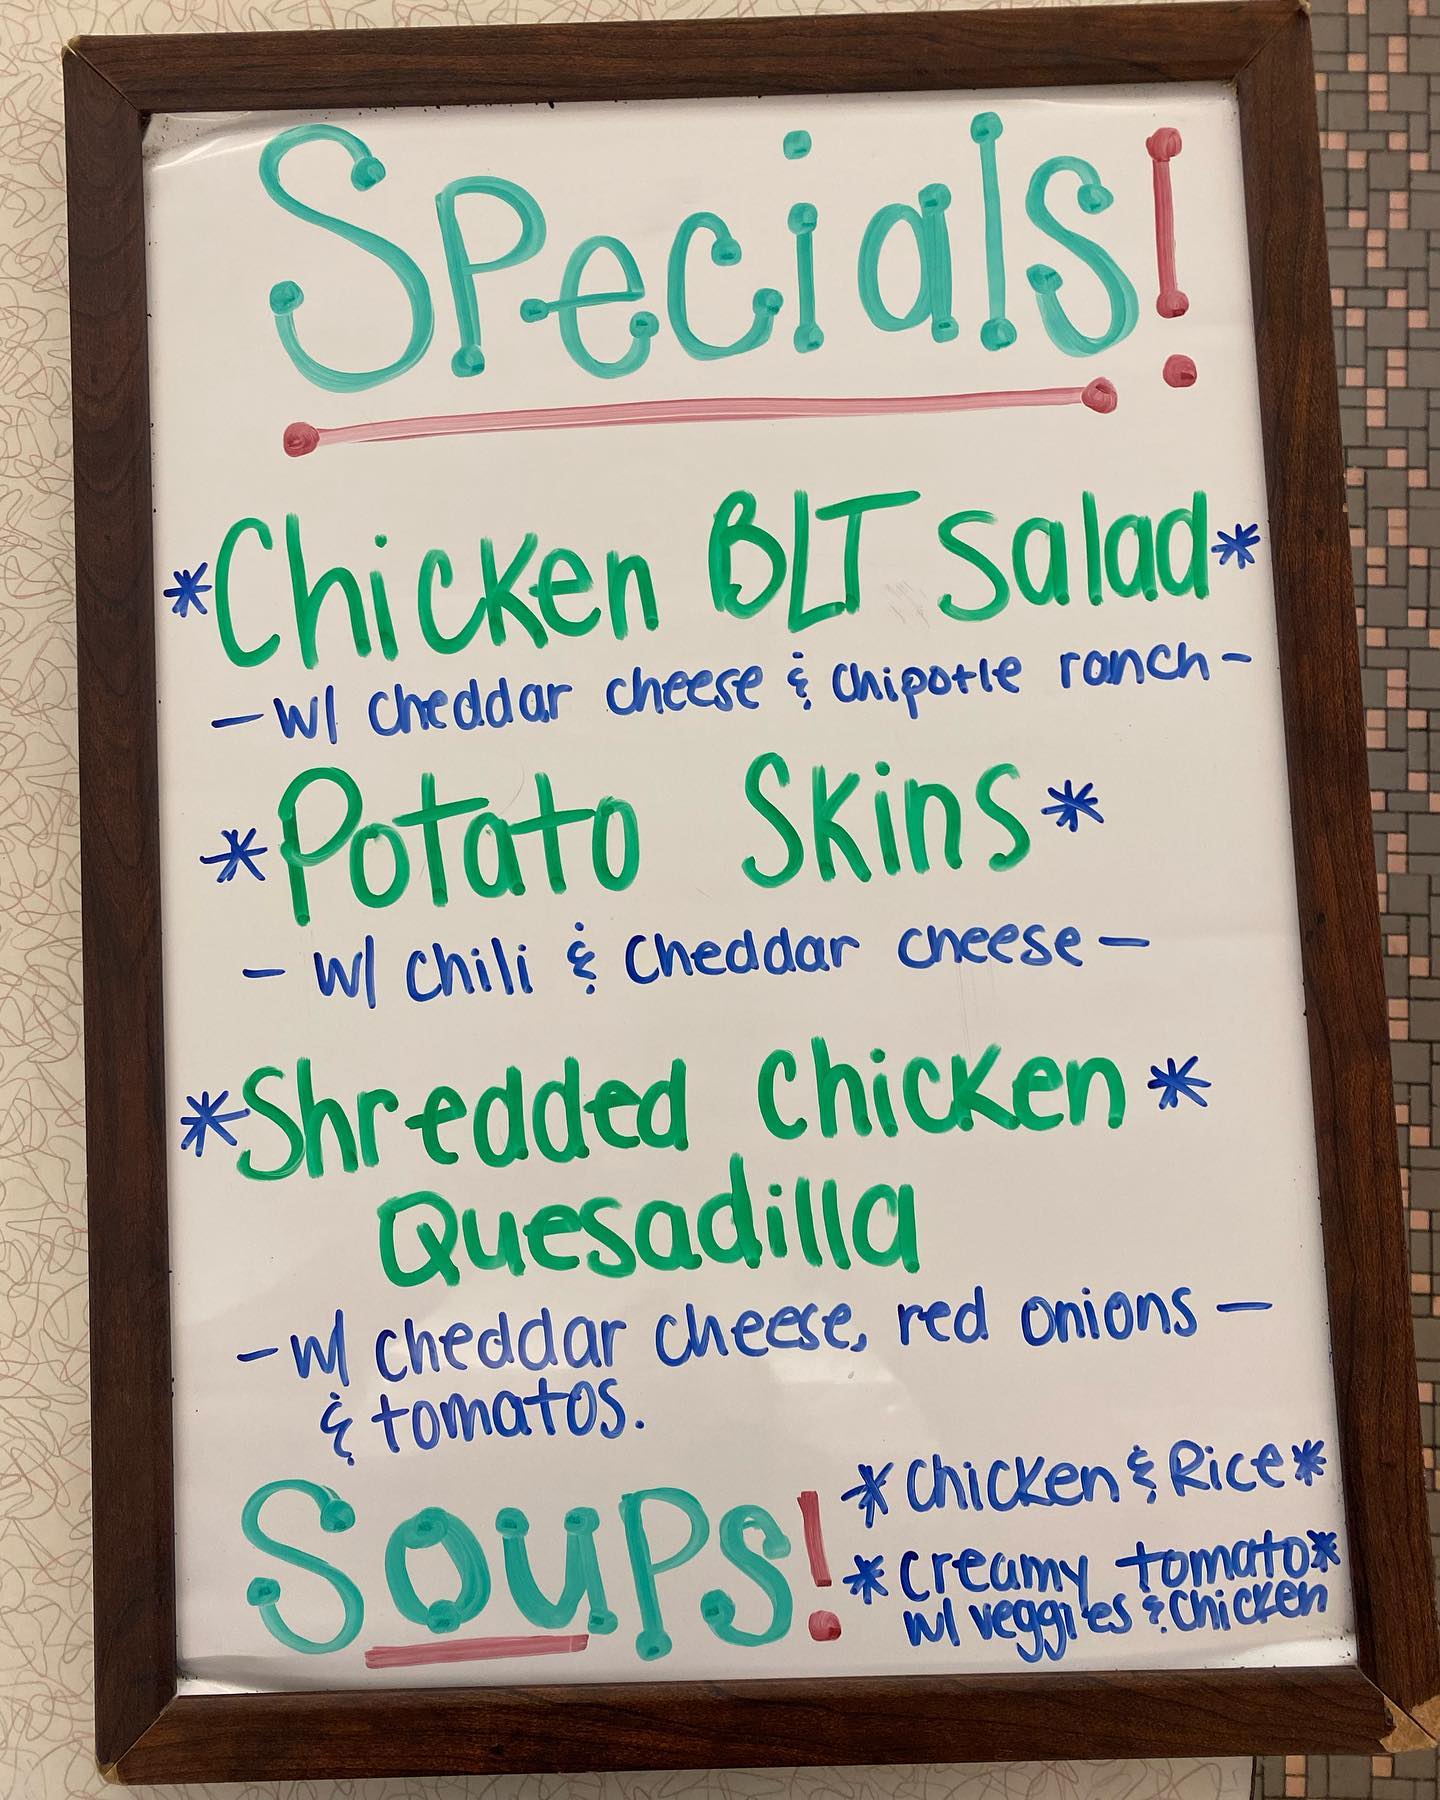 Specials!
*Chicken BLT Salad*
- w/ cheddar cheese & chipotle ranch -
*Potato Skins*
- w/ chili & cheddar cheese -
*Shredded Chicken*
Quesadilla
- w/ cheddar cheese, red onions -
& tomatos.
Soups!
*Chicken & Rice*
*creamy tomato*
w/ veggies & chicken